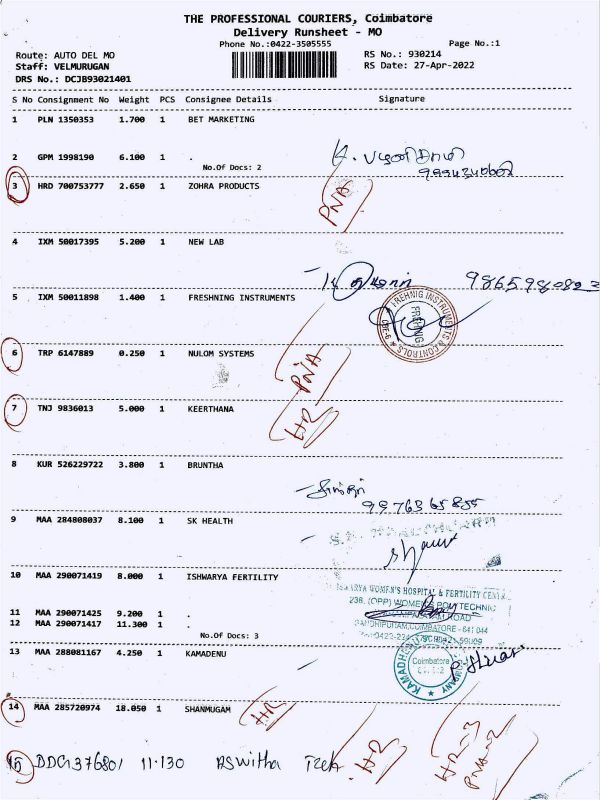 THE PROFESSIONAL COURIERS, Coimbatore
Delivery Runsheet - MO
Phone No.:0422-3505555 Page No.:1
Route: AUTO DEL MO RS No.: 930214
Staff: VELMURUGAN RS Date: 27-Apr-2022
DRS No.: DCJB93021401
S No Consignment No Weight PCS Consignee Details Signature
1 PLN 1350353 1.700 1 BET MARKETING
2 GPM 1998190 6.100 1 .
No.Of Docs: 2
3 HRD 700753777 2.650 1 ZOHRA PRODUCTS PNA
4 IXM 50017395 5.200 1 NEW LAB
9865980823
5 IXM 50011898 1.400 1 FRESHNING INSTRUMENTS
FREHNIG INSTRUMENTS & CONTROLS ★ CBE-9 ★
FREHNIG
6 TRP 6147889 0.250 1 NULOM SYSTEMS PNA
7 TNJ 9836013 5.000 1 KEERTHANA HR
8 KUR 526229722 3.800 1 BRUNTHA
9976365855
9 MAA 284808037 8.100 1 SK HEALTH
10 MAA 290071419 8.000 1 ISHWARYA FERTILITY
WOMEN'S HOSPITAL & FERTILITY
238, (OPP) WOMEN'S POLYTECHNIC
11 MAA 290071425 9.200 1 .
ROAD
12 MAA 290071417 11.300 1 .
COIMBATORE - 641 044
No.Of Docs: 3
13 MAA 288081167 4.250 1 KAMADENU
Coimbatore
14 MAA 285720974 18.050 1 SHANMUGAM HR
15 DDG1376801 11.130 ASwitha Tech HR
HR-3
PNA-2